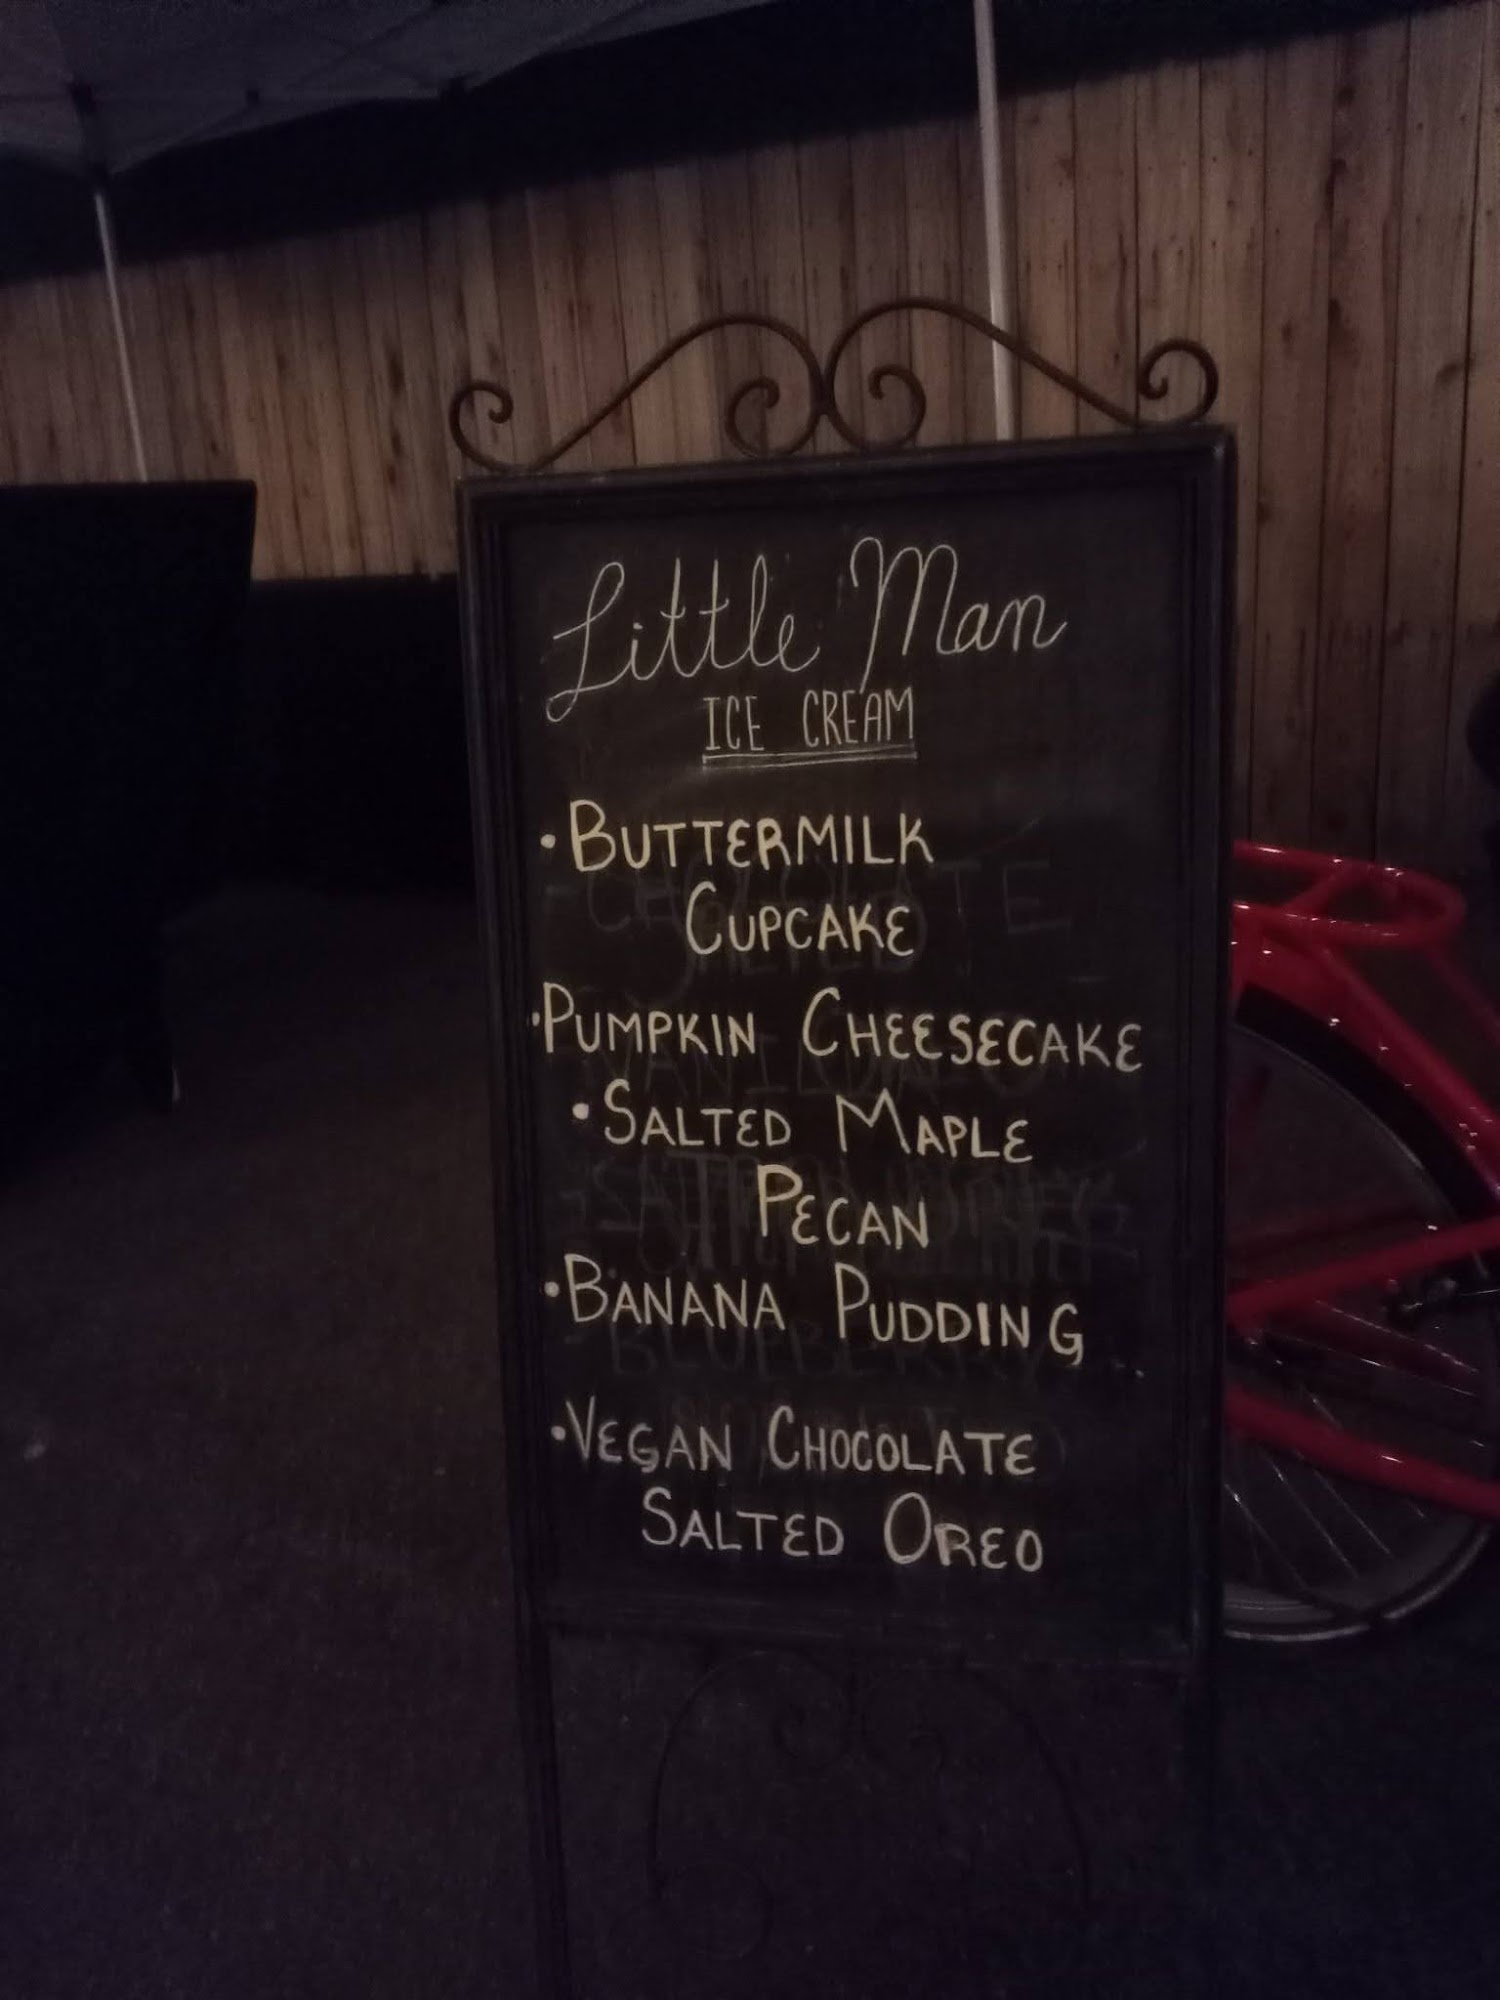 Little Man
ICE CREAM
• BUTTERMILK
CUPCAKE
• PUMPKIN CHEESECAKE
• SALTED MAPLE
PECAN
• BANANA PUDDING
• VEGAN CHOCOLATE
SALTED OREO